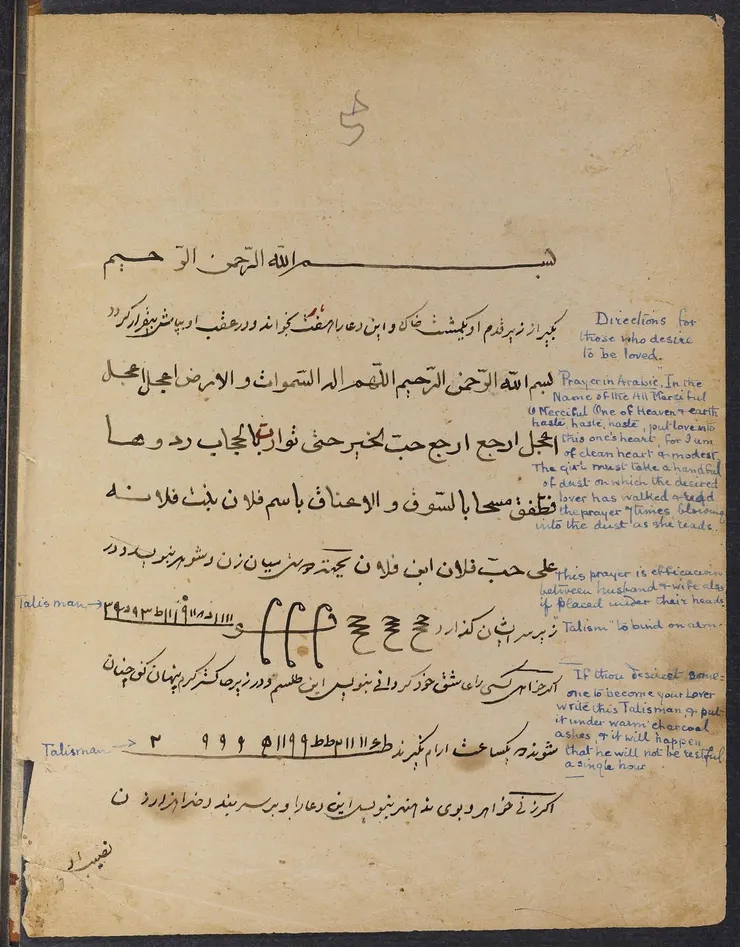 بسم الله الرحمن الرحيم
بگیر از زیر قدم او یکمشت خاک و این دعا را هفت بار بخواند و در عقب او بپاش بیقرار گردد
بسم الله الرّحمن الرّحیم اللّهم اله السّموات و الارض اعجل اعجل
اعجل ارجع ارجع حبّ الخیر حتی توارت بالحجاب ردوها
فطفق مسحا بالسّوق و الاعناق باسم فلان بنت فلانه
علی حبّ فلان ابن فلان بجهة میان زن و شوهر بنویسد و در
زیر سر ایشان گذارد
اکر خواهی کسی را عاشق خود کردانی بنویس این طلسم و در زیر خاکستر کرم پنهان کن چنان
شوند که یکساعت ارام نکیرند
اکر زنی خواهد این دعا را و بر سر بندد
نصیب او
Directions for
those who desire
to be loved.
Prayer in Arabic, In the
Name of the All Merciful
O Merciful One of Heaven & earth
haste haste, haste, put love into
this one's heart, for I am
of clean heart & modest.
The girl must take a handful
of dust on which the desired
lover has walked & read
the prayer 7 times blowing
into the dust as she reads.
This prayer is efficacious
between husband & wife also
if placed under their heads.
Talisman →
Talism "to bind on arm.
If thou desirest some=
one to become your Lover
write this Talisman, & put
it under warm charcoal
ashes, & it will happen
that he will not be restful
a single hour
Talisman →